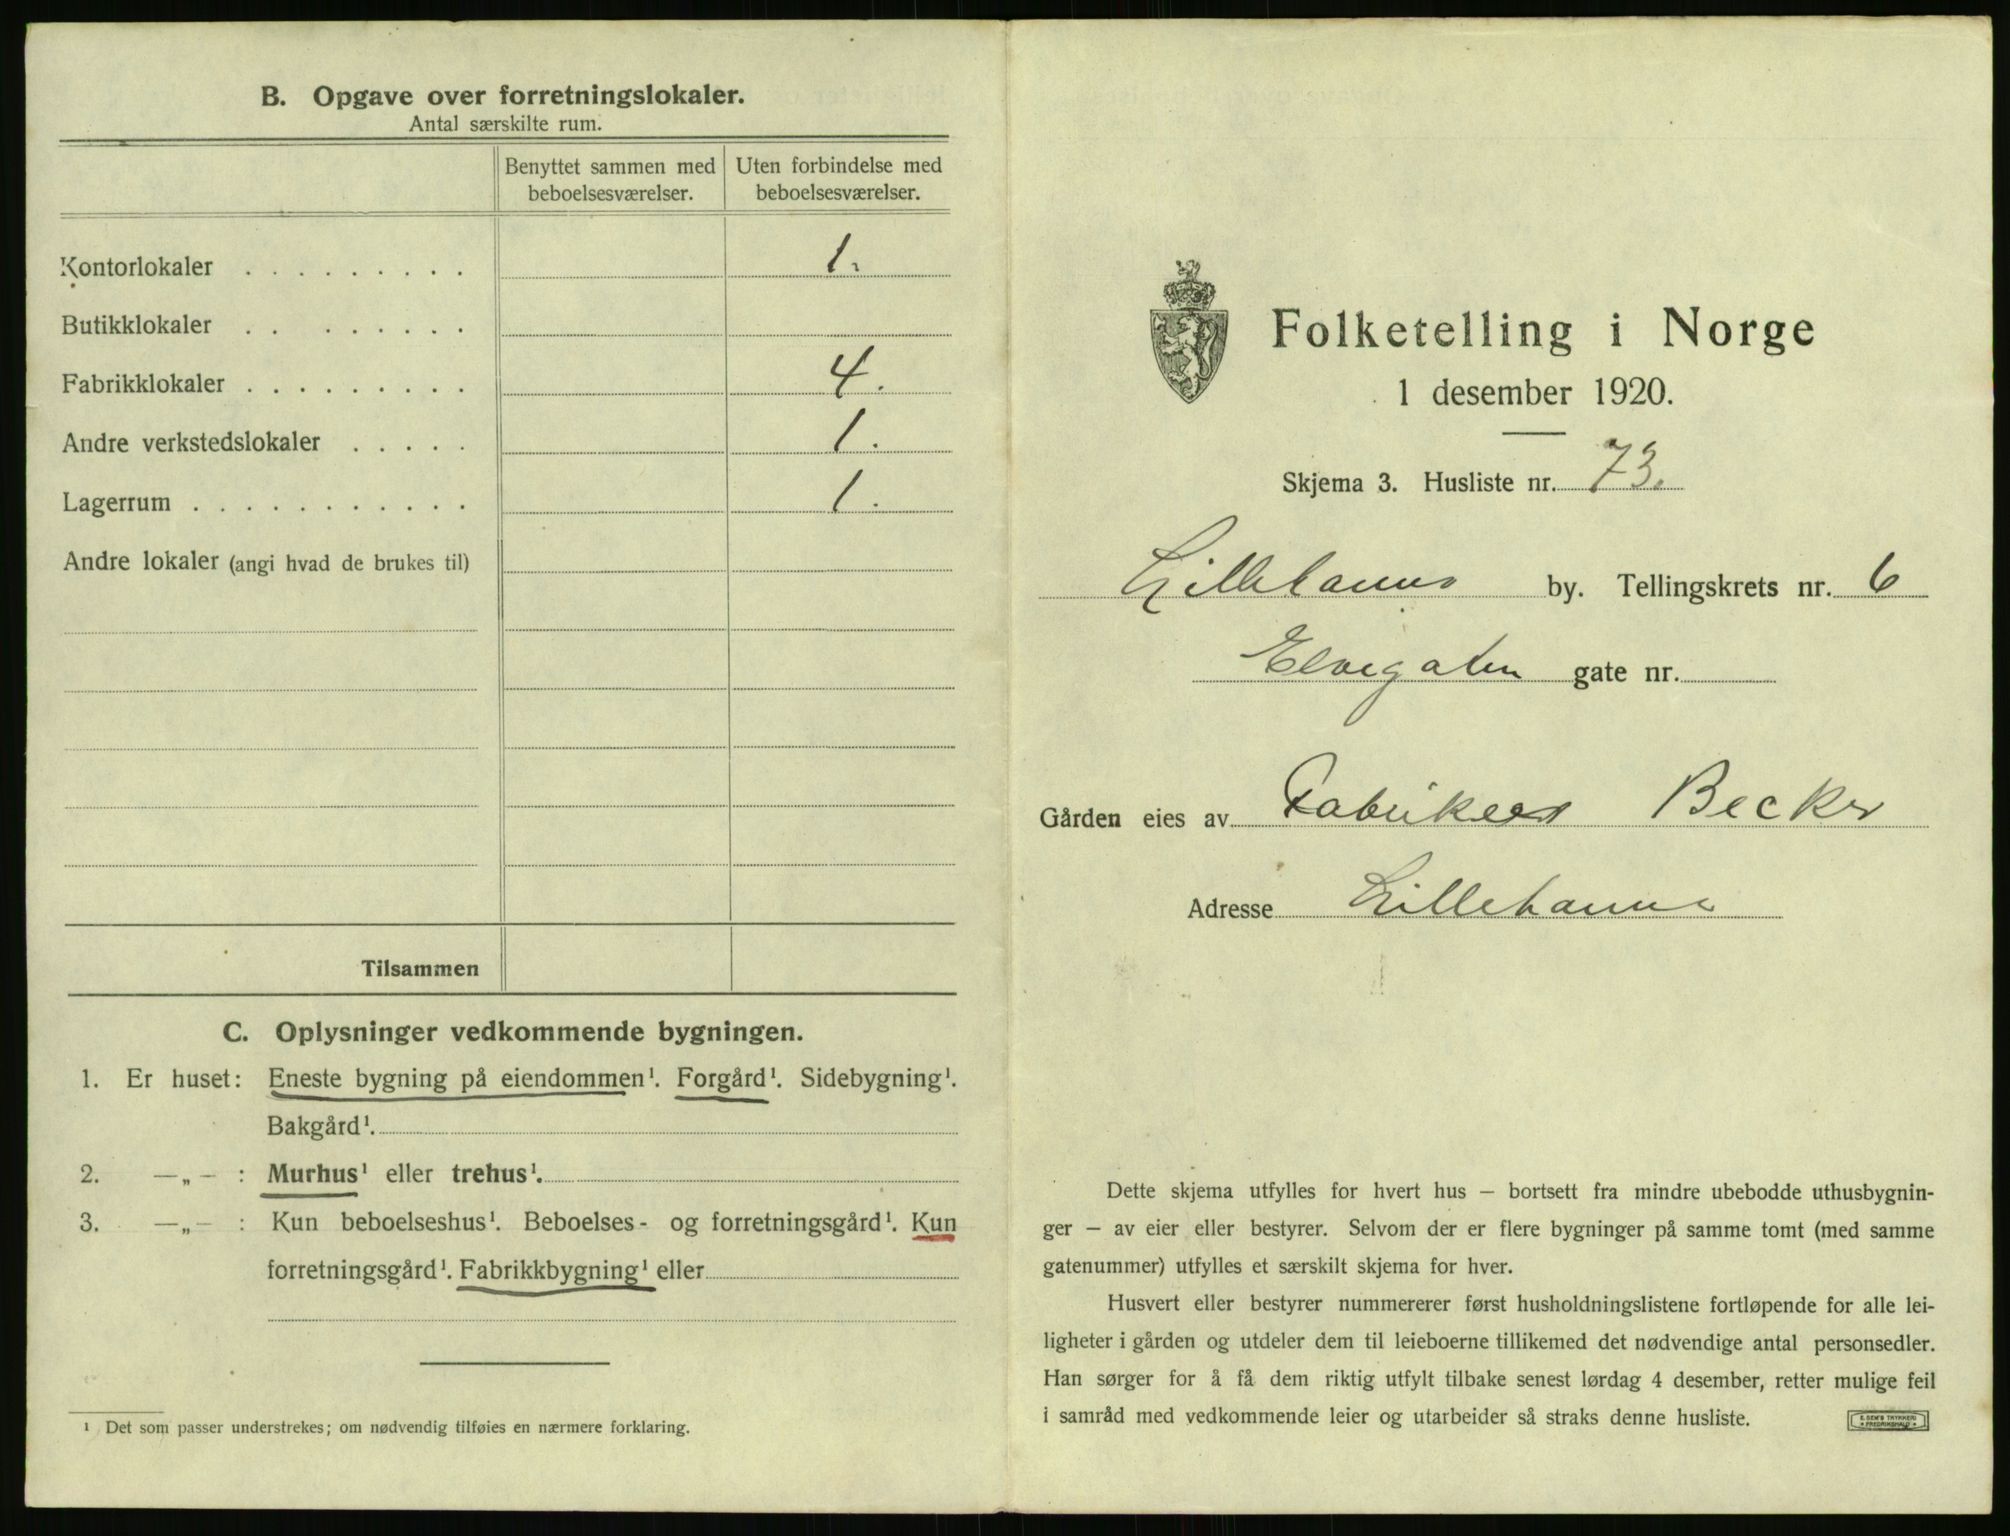 B. Opgave over forretningslokaler.
Antal særskilte rum.
Benyttet sammen med beboelsesværelser.
Uten forbindelse med beboelsesværelser.
Kontorlokaler . . . . . . . . . 1.
Butikklokaler . . . . . . . .
Fabrikklokaler . . . . . . . . . 4.
Andre verkstedslokaler . . . . . 1.
Lagerrum . . . . . . . . . . . 1.
Andre lokaler (angi hvad de brukes til)
Tilsammen
C. Oplysninger vedkommende bygningen.
1. Er huset: Eneste bygning på eiendommen¹. Forgård¹. Sidebygning¹.
Bakgård¹.
2. —„— : Murhus¹ eller trehus¹.
3. —„— : Kun beboelseshus¹. Beboelses- og forretningsgård¹. Kun
forretningsgård¹. Fabrikkbygning¹ eller
¹ Det som passer understrekes; om nødvendig tilføies en nærmere forklaring.
Folketelling i Norge
1 desember 1920.
Skjema 3. Husliste nr. 73.
Lillehammer by. Tellingskrets nr. 6
Elvegaten gate nr.
Gården eies av Fabrikeier Becker
Adresse Lillehammer
Dette skjema utfylles for hvert hus — bortsett fra mindre ubebodde uthusbygnin-
ger — av eier eller bestyrer. Selvom der er flere bygninger på samme tomt (med samme
gatenummer) utfylles et særskilt skjema for hver.
Husvert eller bestyrer nummererer først husholdningslistene fortløpende for alle lei-
ligheter i gården og utdeler dem til leieboerne tillikemed det nødvendige antal personsedler.
Han sørger for å få dem riktig utfylt tilbake senest lørdag 4 desember, retter mulige feil
i samråd med vedkommende leier og utarbeider så straks denne husliste.
E. SEM'S TRYKKERI
FREDRIKSHALD